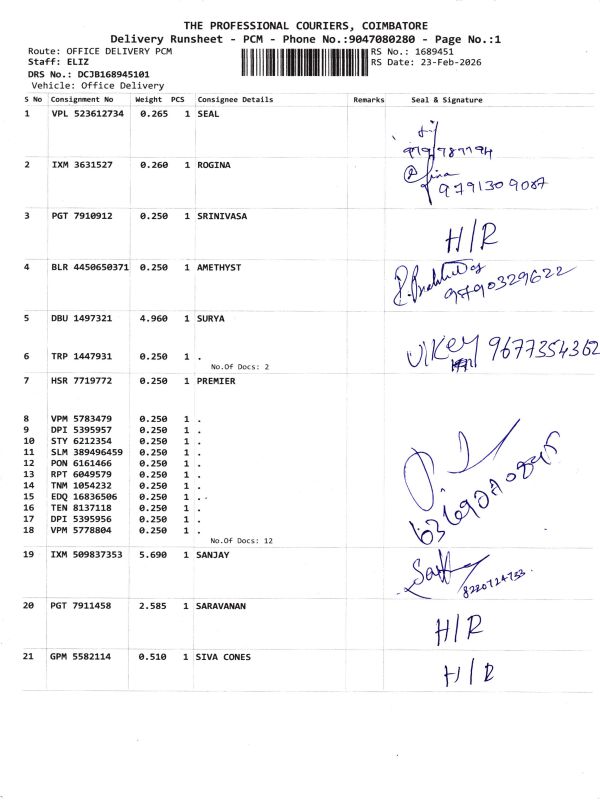 THE PROFESSIONAL COURIERS, COIMBATORE
Delivery Runsheet - PCM - Phone No.:9047080280 - Page No.:1
Route: OFFICE DELIVERY PCM RS No.: 1689451
Staff: ELIZ RS Date: 23-Feb-2026
DRS No.: DCJB168945101
Vehicle: Office Delivery
S No Consignment No Weight PCS Consignee Details Remarks Seal & Signature
1 VPL 523612734 0.265 1 SEAL
2 IXM 3631527 0.260 1 ROGINA
9791309087
3 PGT 7910912 0.250 1 SRINIVASA
H/R
4 BLR 4450650371 0.250 1 AMETHYST
9790329622
5 DBU 1497321 4.960 1 SURYA
9677354362
6 TRP 1447931 0.250 1 .
No.Of Docs: 2
7 HSR 7719772 0.250 1 PREMIER
8 VPM 5783479 0.250 1 .
9 DPI 5395957 0.250 1 .
10 STY 6212354 0.250 1 .
11 SLM 389496459 0.250 1 .
12 PON 6161466 0.250 1 .
13 RPT 6049579 0.250 1 .
14 TNM 1054232 0.250 1 .
15 EDQ 16836506 0.250 1 .
16 TEN 8137118 0.250 1 .
17 DPI 5395956 0.250 1 .
18 VPM 5778804 0.250 1 .
No.Of Docs: 12
19 IXM 509837353 5.690 1 SANJAY
8220724733
20 PGT 7911458 2.585 1 SARAVANAN
H/R
21 GPM 5582114 0.510 1 SIVA CONES
H/R